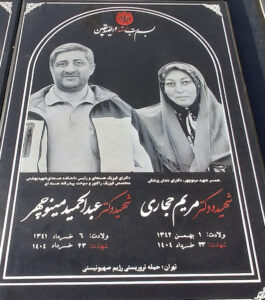 بسم رب الشهداء والصدیقین
دکترای فیزیک هسته‌ای و رئیس دانشکده هسته‌ای شهید بهشتی
متخصص فیزیک راکتور و سوخت پیشرفته هسته ای
همسر شهید مینوچهر، دکترای دندان پزشکی
شهیده دکتر مریم حجاری
ولادت: ۱ بهمن ۱۳۴۲
شهادت: ۲۳ خرداد ۱۴۰۴
شهید دکتر عبدالحمید مینوچهر
ولادت: ۶ خرداد ۱۳۴۱
شهادت: ۲۳ خرداد ۱۴۰۴
تهران: حمله تروریستی رژیم صهیونیستی